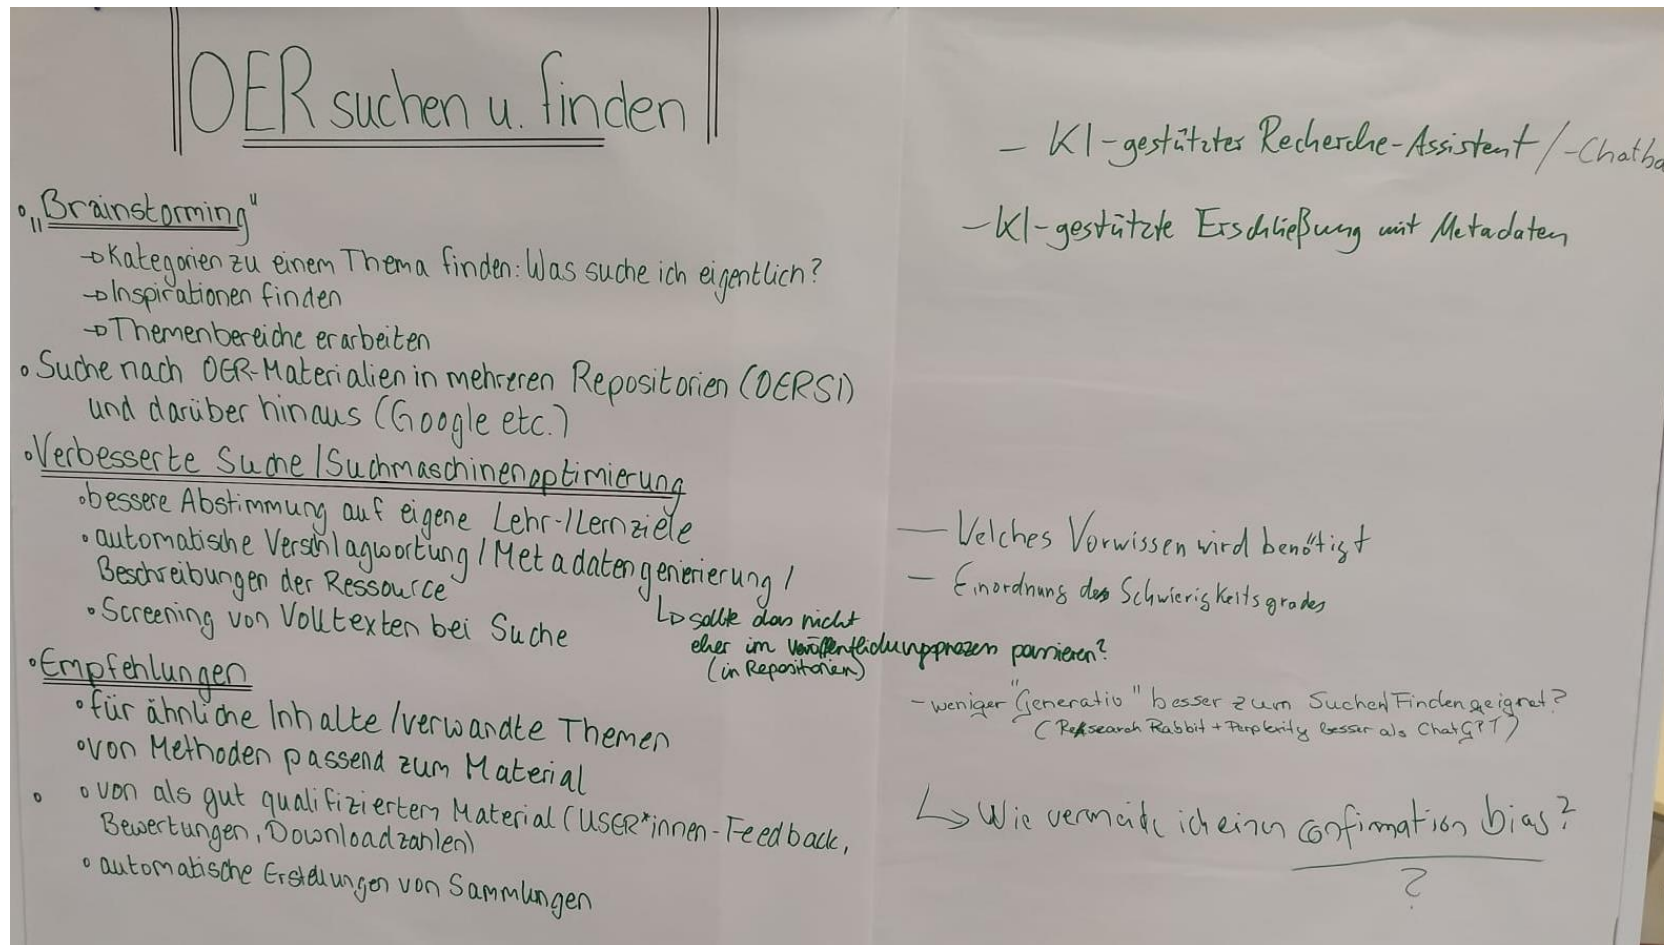 OER suchen u. finden
• „Brainstorming"
→ Kategorien zu einem Thema finden: Was suche ich eigentlich?
→ Inspirationen finden
→ Themenbereiche erarbeiten
• Suche nach OER-Materialien in mehreren Repositorien (OERSI)
und darüber hinaus (Google etc.)
• Verbesserte Suche / Suchmaschinenoptimierung
• bessere Abstimmung auf eigene Lehr-/Lernziele
• automatische Verschlagwortung / Metadatengenerierung /
Beschreibungen der Ressource
↳ sollte das nicht
eher im Veröffentlichungsprozess passieren?
(in Repositorien)
• Screening von Volltexten bei Suche
• Empfehlungen
• für ähnliche Inhalte / verwandte Themen
• von Methoden passend zum Material
• von als gut qualifiziertem Material (USER*innen-Feedback,
Bewertungen, Downloadzahlen)
• automatische Erstellungen von Sammlungen
– KI-gestützter Recherche-Assistent / -Chatbo
– KI-gestützte Erschließung mit Metadaten
— Welches Vorwissen wird benötigt
— Einordnung des Schwierigkeitsgrades
– weniger "Generativ" besser zum Suchen/Finden geeignet?
(Research Rabbit + Perplexity besser als ChatGPT)
↳ Wie vermeide ich einen confirmation bias?
?